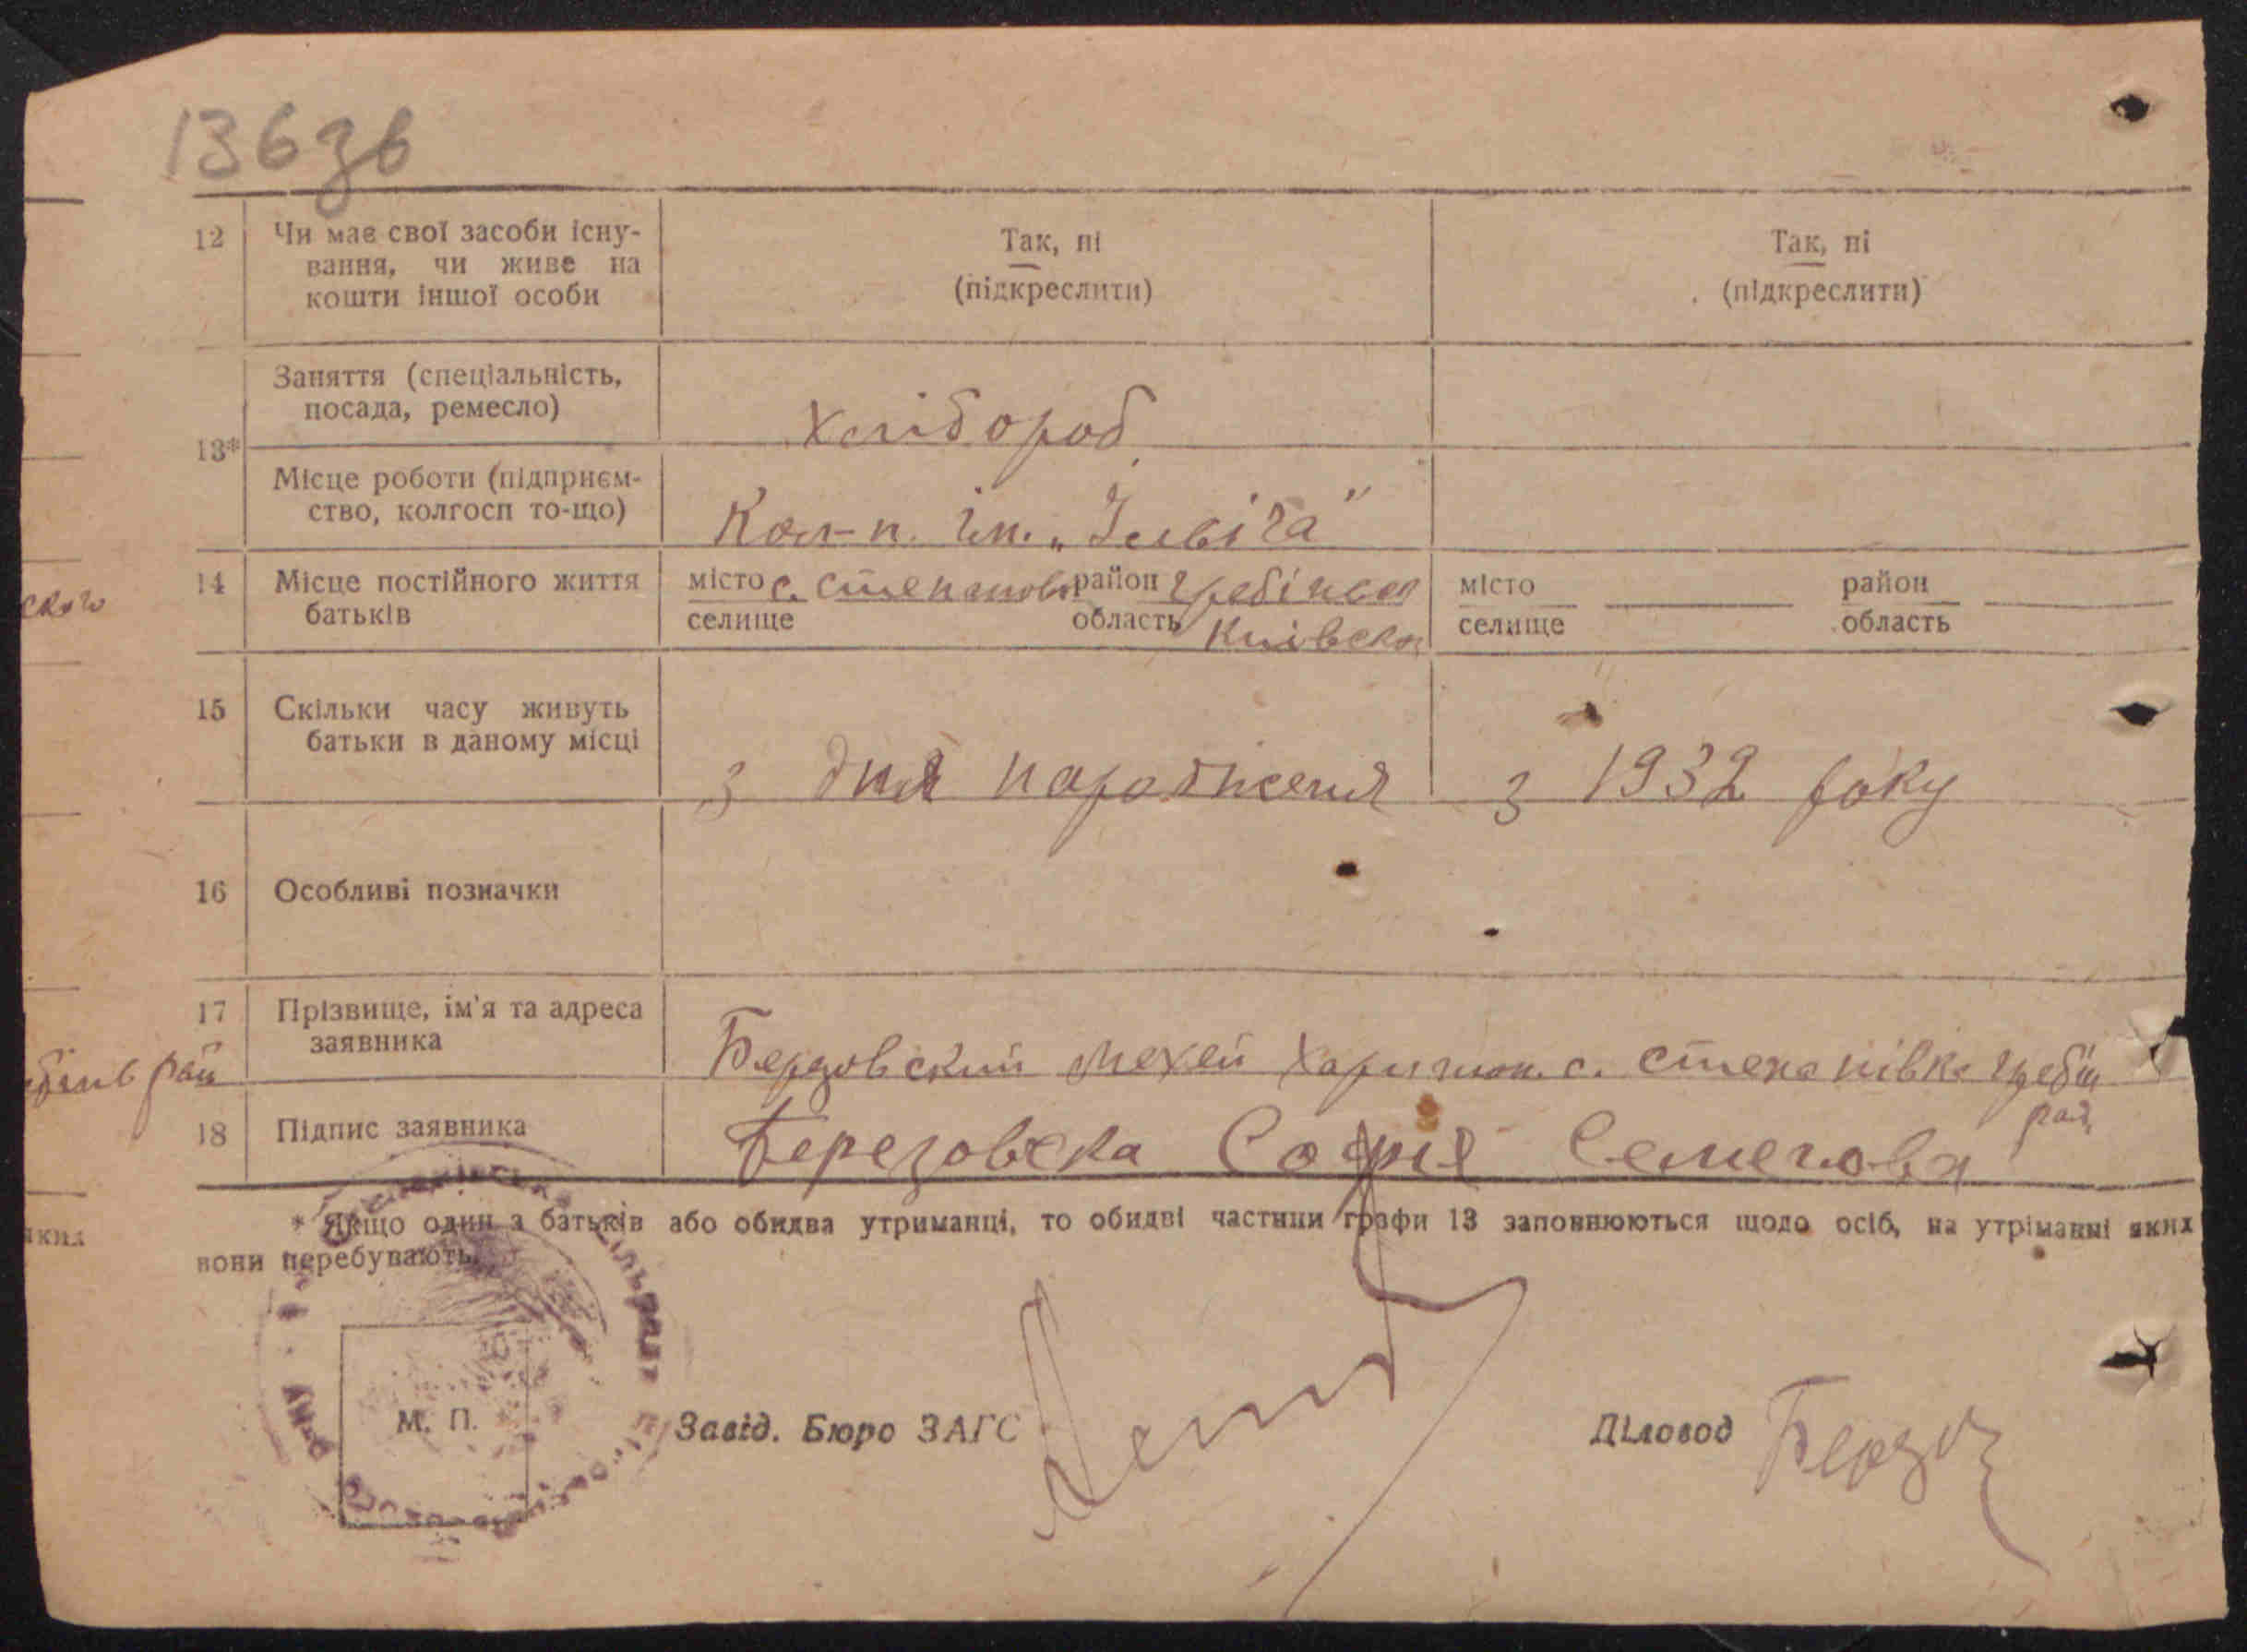 136зв
12 Чи має свої засоби існу-
вання, чи живе на
кошти іншої особи
Так, ні
(підкреслити)
Так, ні
(підкреслити)
13*
Заняття (спеціальність,
посада, ремесло)
Хлібороб
Місце роботи (підприєм-
ство, колгосп то-що)
Кол-п. ім. „Ілліча"
14 Місце постійного життя
батьків
місто с. Степанов район Гребінкая
селище область Київска
місто район
селище область
15 Скільки часу живуть
батьки в даному місці
з дня народженя
з 1932 року
16 Особливі позначки
17 Прізвище, ім'я та адреса
заявника
Берзовский Мехей Харитон. с. Степанівка Гребін
рай
18 Підпис заявника
Березовска Софія Семенова
* Якщо один з батьків або обидва утриманці, то обидві частини графи 13 заповнюються щодо осіб, на утріманні яких
вони перебувають.
М. П.
Завід. Бюро ЗАГС
Діловод Берзо
ского
рай
яких